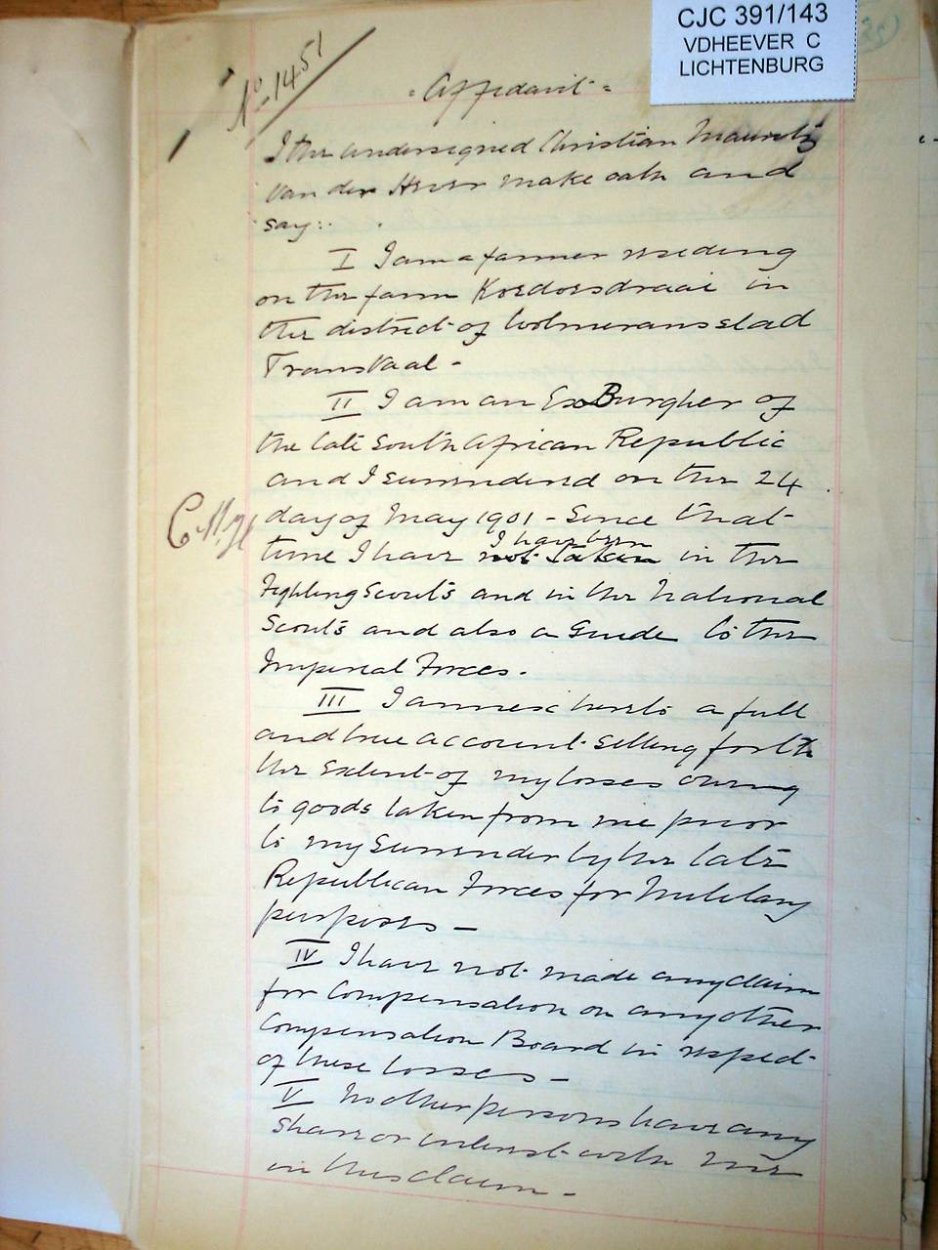 CJC 391/143
VDHEEVER C
LICHTENBURG
No 1451
Affidavit
I the undersigned Christian Mauritz
van der Hever make oath and
say:.
I I am a farmer residing
on the farm Koedoesdraai in
the district of Wolmeransstad
Transvaal -
II I am an Ex Burgher of
the late South African Republic
and I surrendered on the 24
day of May 1901 - Since that
I have been
time I have not taken in the
Fighting Scouts and in the National
Scouts and also a Guide to the
Imperial Forces.
III I annex hereto a full
and true account setting forth
the extent of my losses owing
to goods taken from me prior
to my surrender by the late
Republican Forces for Military
purposes -
IV I have not made any claim
for Compensation on any other
Compensation Board in respect
of these losses -
V No other persons have any
share or interest with me
in this claim -